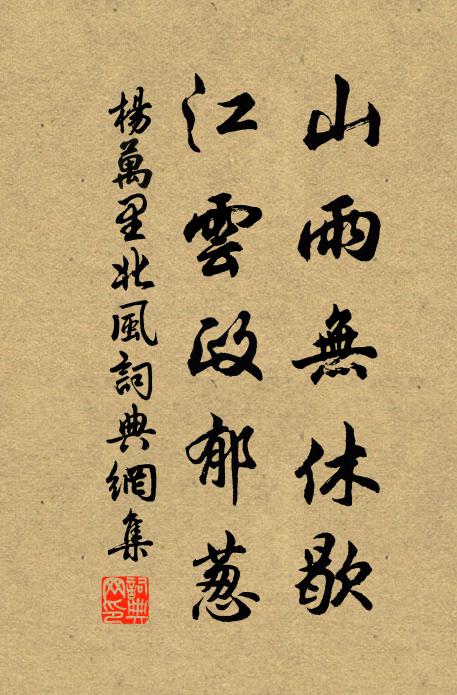 山雨無休歇
江雲政郁葱
楊萬里北風詞典網集
詞典網印